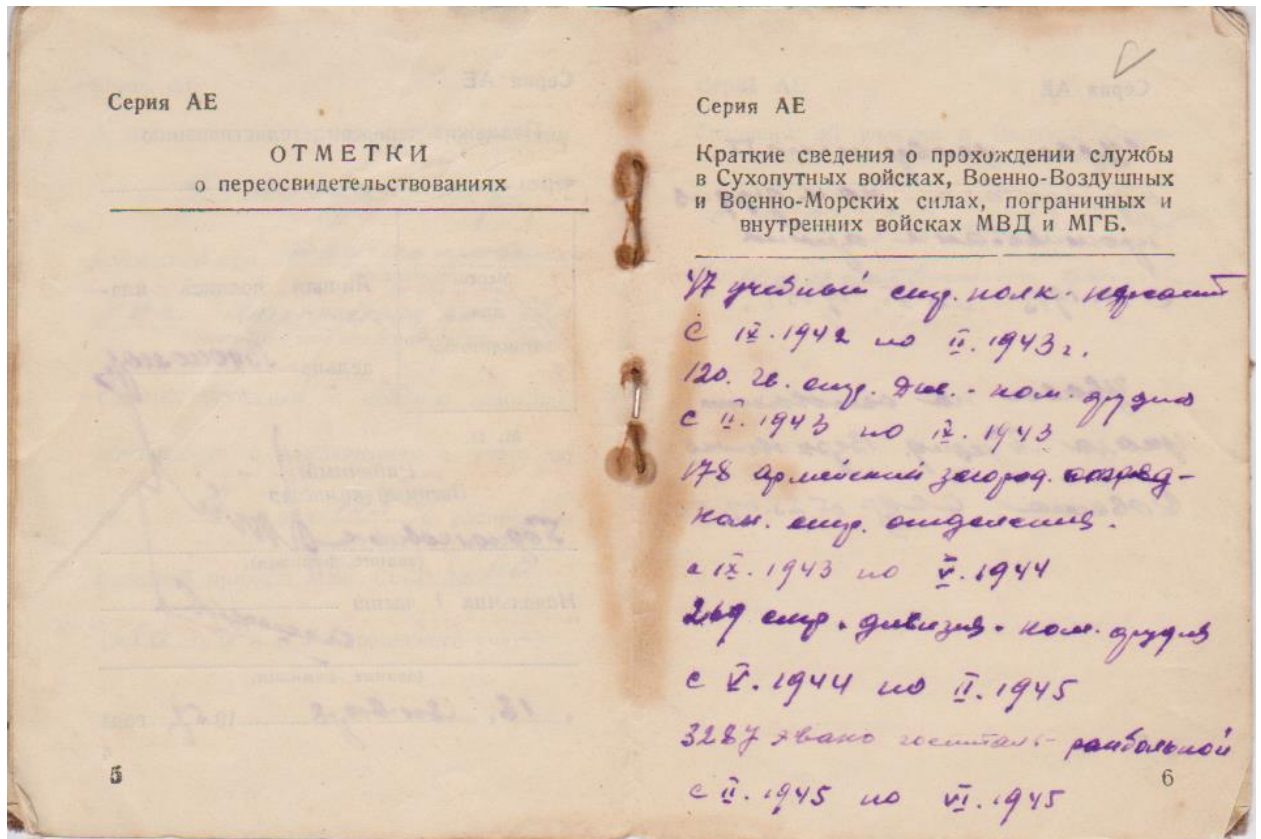 Серия АЕ
ОТМЕТКИ
о переосвидетельствованиях
5
Серия АЕ
Краткие сведения о прохождении службы
в Сухопутных войсках, Военно-Воздушных
и Военно-Морских силах, пограничных и
внутренних войсках МВД и МГБ.
47 учебный стр. полк - курсант
с IX.1942 по II.1943г.
120. гв. стр. див. - ком. орудия
с II.1943 по IX.1943
178 армейский загород. отряд -
ком. стр. отделения.
с IX.1943 по V.1944
269 стр. дивизия - ком. орудия
с V.1944 по II.1945
3287 эвако госпиталь - ранбольной
с II.1945 по VI.1945
6